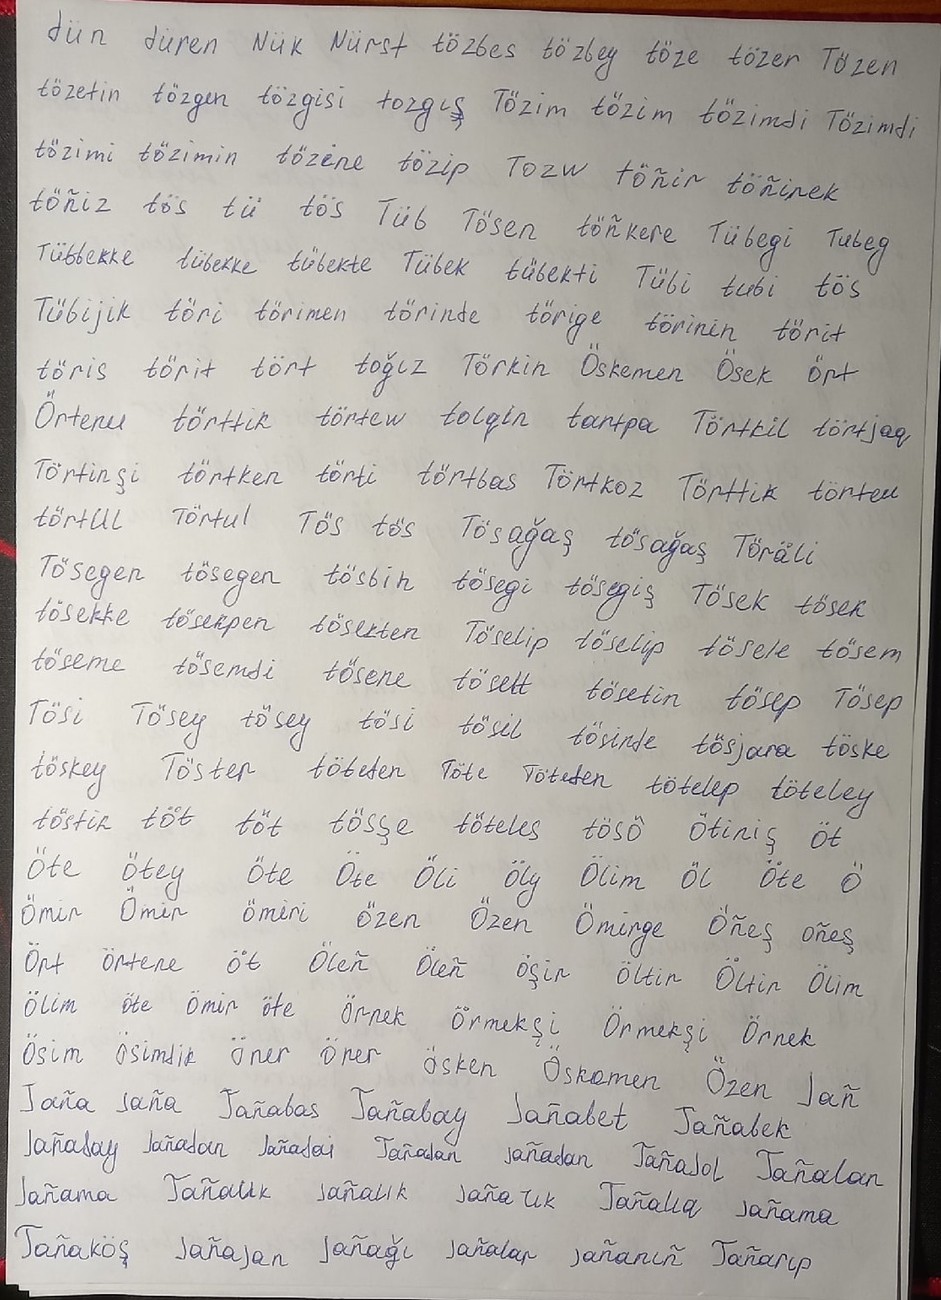 dün düren Nük Nürst tözbes tözbey töze tözer Tözen
tözetin tözgen tözgisi tozgış Tözim tözim tözimdi Tözimdi
tözimi tözimin tözene tözip Tozw töñir töñirek
töñiz tös tü tös Tüb Tösen töñkere Tübegi Tubeg
Tübbekke tübekke tübekte Tübek tübekti Tübi tubi tös
Tübijik töri törimen törinde törige törinin törit
töris törit tört toğız Törkin Öskemen Ösek Ört
Örteneu törttik törtew tolqin tantpa Törtkil törtjaq
Törtinşi törtken törti törtbas Törtkoz Törttik törteu
törtul Törtul Tös tös Tösağaş tösağaş Töräli
Tösegen tösegen tösbin tösegi tösegiş Tösek tösek
tösekke tösekpen tösekten Töselip töselip tösele tösem
töseme tösemdi tösene tösett tösetin tösep Tösep
Tösi Tösey tösey tösi tösil tösinde tösjara töske
töskey Töster töteden Töte Töteden tötelep töteley
töstik töt töt tösşe töteles tösö ötiniş öt
Öte ötey öte Öte Öli öly Ölim öl Öte Ö
Ömir Ömir ömiri özen Özen Ömirge Öñeş oñeş
Ört örtene öt Öleñ Öleñ öşir öltir Öltir Ölim
ölim öte ömir öte örnek örmekşi Örmekşi Örnek
Ösim ösimdik öner öner ösken Öskemen Özen Jañ
Jaña jaña Jañabas Jañabay Jañabet Jañabek
Jañaday jañadan jañadai Jañadan jañadan Jañajol Jañalan
jañama Jañalık jañalık jaña uk Jañalıq jañama
Jañaköş jañajan jañağı jañalar jañanıñ Jañarıp